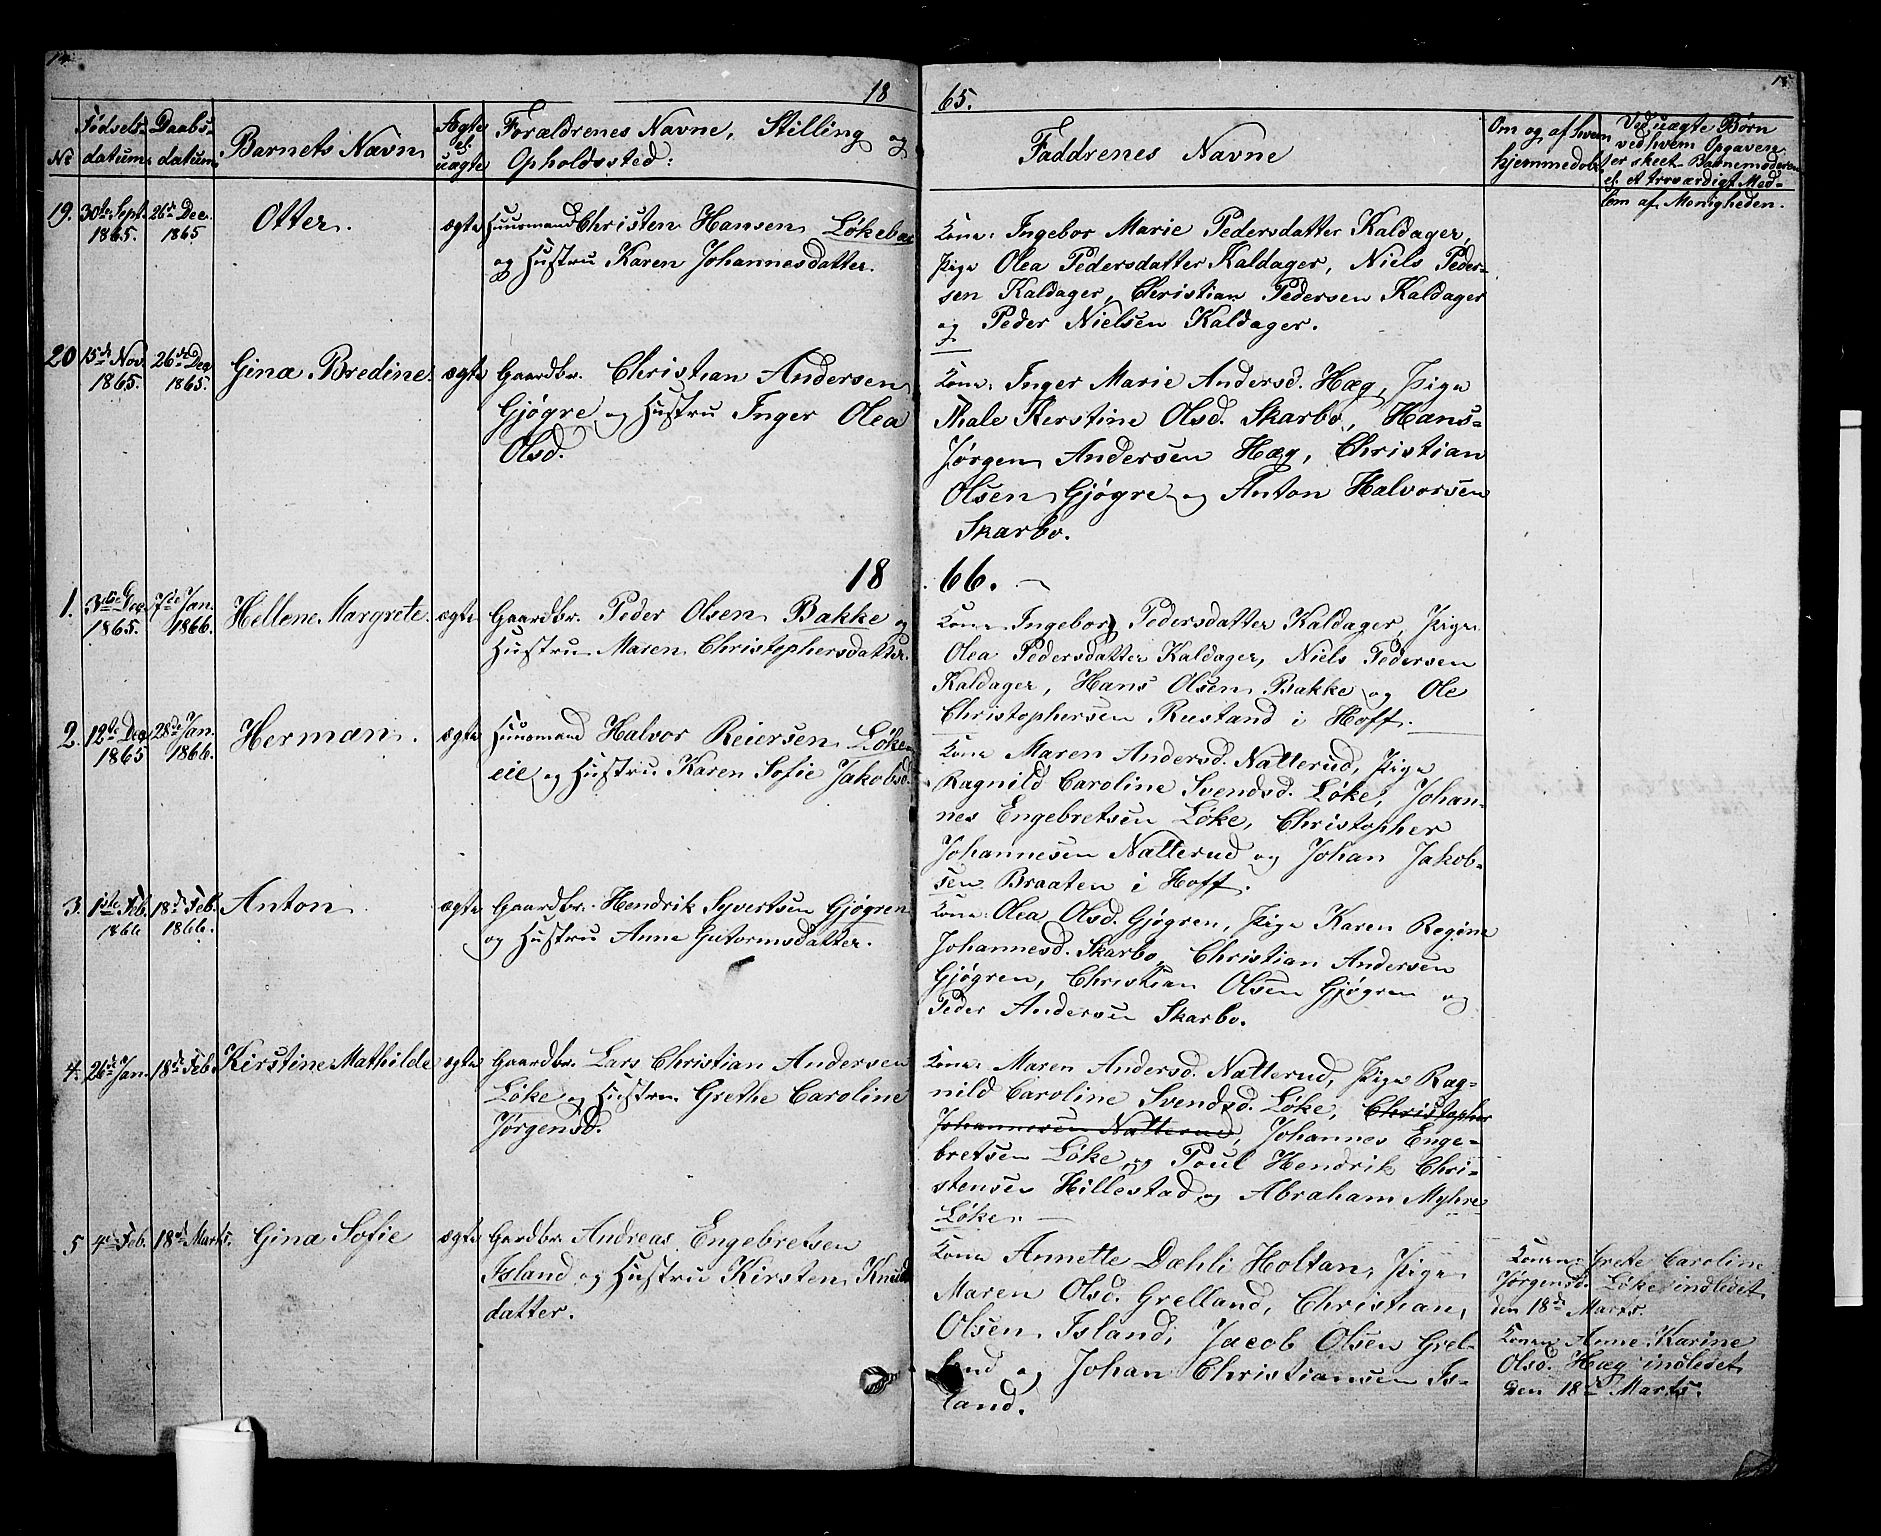 14.
18
Fødsels-
datum.
Daabs-
datum.
No
Barnets Navn
Ægte
el.
uægte
Forældrenes Navne, Stilling og
Opholdssted:
19. 30te Sept. 26de Dec. Otter. ægte Huusmand Christen Hansen Løkebac
1865. 1865 og Hustru Karen Johannesdatter.
20 15de Nov. 26de Dec. Gina Bredine. ægte Gaardbr. Christian Andersen
1865. 1865. Gjøgre og Hustru Inger Olea
Olsd.
18
1. 3die Dec. 7de Jan. Hellene Margrete. ægte Gaardbr. Peder Olsen Bakke og
1865. 1866. Hustru Maren Christophersdatter.
2. 12te Dec. 28de Jan. Herman. ægte Huusmand Halvor Reiersen Løke
1865 1866. eie og Hustru Karen Sofie Jakobsd.
3. 1ste Feb. 18de Feb. Anton ægte Gaardbr. Hendrik Syvertsen Gjøgren
1866 1866. og Hustru Anne Gutormsdatter.
4. 26de Jan. 18de Feb. Kirstine Mathilde ægte Gaardbr. Lars Christian Andersen
Løke og Hustru Grethe Caroline
Jørgensd.
5 4de Feb. 18de Marts. Gina Sofie ægte Gardbr. Andreas Engebretsen
Island og Hustru Kirsten Knuds
datter.
15
65.
Faddrenes Navne
Om og af hvem
hjemmedøbt.
Ved uægte Børn
ved hvem Opgaven
er skeet Barnemoderen
el. et troværdigt Med-
lem af Menigheden.
Kone Ingebor Marie Pedersdatter Kaldager,
Pige Olea Pedersdatter Kaldager, Niels Peder-
sen Kaldager, Christian Pedersen Kaldager
og Peder Nielsen Kaldager.
Kone Inger Marie Andersd. Hæg, Pige
Thale Kerstine Olsd. Skarbo, Hans-
Jørgen Andersen Hæg, Christian
Olsen Gjøgre og Anton Halvorsen
Skarbo.
66.
Kone Ingebor Pedersdatter Kaldager, Pige
Olea Pedersdatter Kaldager, Niels Pedersen
Kaldager, Hans Olsen Bakke og Ole
Christophersen Rustand i Hoff.
Kone Maren Andersd. Natterud, Pige
Ragnild Caroline Svendsd. Løke, Johan-
nes Engebretsen Løke, Christopher
Johannesen Natterud og Johan Jakob-
sen Braaten i Hoff.
Kone Olea Olsd. Gjøgren, Pige Karen Regine
Johannesd. Skarbo, Christian Andersen
Gjøgren, Christian Olsen Gjøgren og
Peder Andersen Skarbo.
Kone Maren Andersd. Natterud, Pige Rag-
nild Caroline Svendsd. Løke, Christopher
Johannesen Natterud, Johannes Enge-
bretsen Løke og Poul Hendrik Chri-
stensen Hillestad og Abraham Myhre
Løke.
Kone Annette Dæhli Holtan, Pige
Maren Olsd. Grelland, Christian
Olsen Island, Jacob Olsen Grel-
land og Johan Christiansen Is-
land.
Konen Grete Caroline
Jørgensd. Løke indledet
den 18de Marts.
Konen Anne Karine
Olsd. Hæg indledet
den 18de Marts.